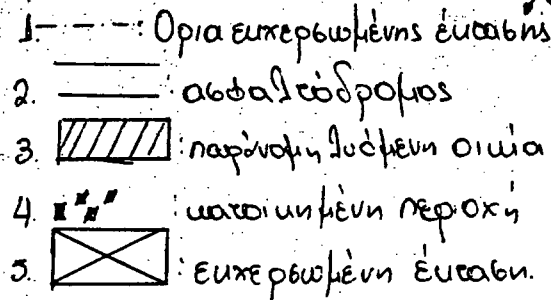 1. : Όρια εκχερσωμένης έκτασης
2. : ασφαλτόδρομος
3. : παράνομη λυόμενη οικία
4. : κατοικημένη περιοχή
5. : εκχερσωμένη έκταση.